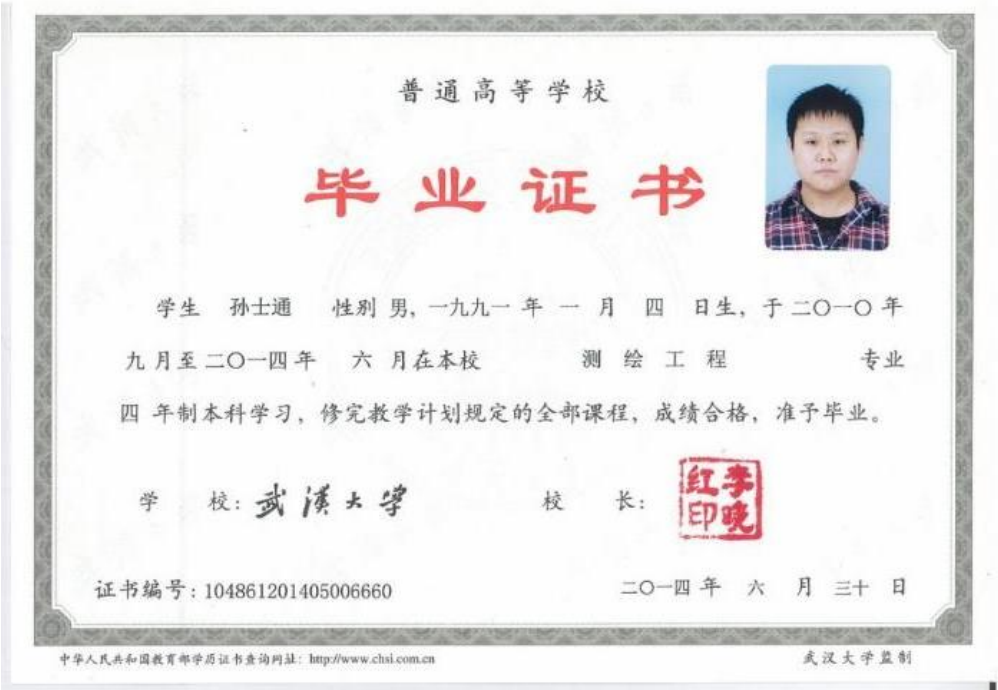 普通高等学校
毕业证书
学生 孙士通 性别 男，一九九一 年 一 月 四 日生，于 二〇一〇 年
九 月至 二〇一四 年 六 月在本校 测绘工程 专业
四 年制本科学习，修完教学计划规定的全部课程，成绩合格，准予毕业。
学 校：武漢大学 校 长：李晓红印
证书编号：104861201405006660 二〇一四 年 六 月 三十 日
中华人民共和国教育部学历证书查询网址：http://www.chsi.com.cn 武汉大学监制